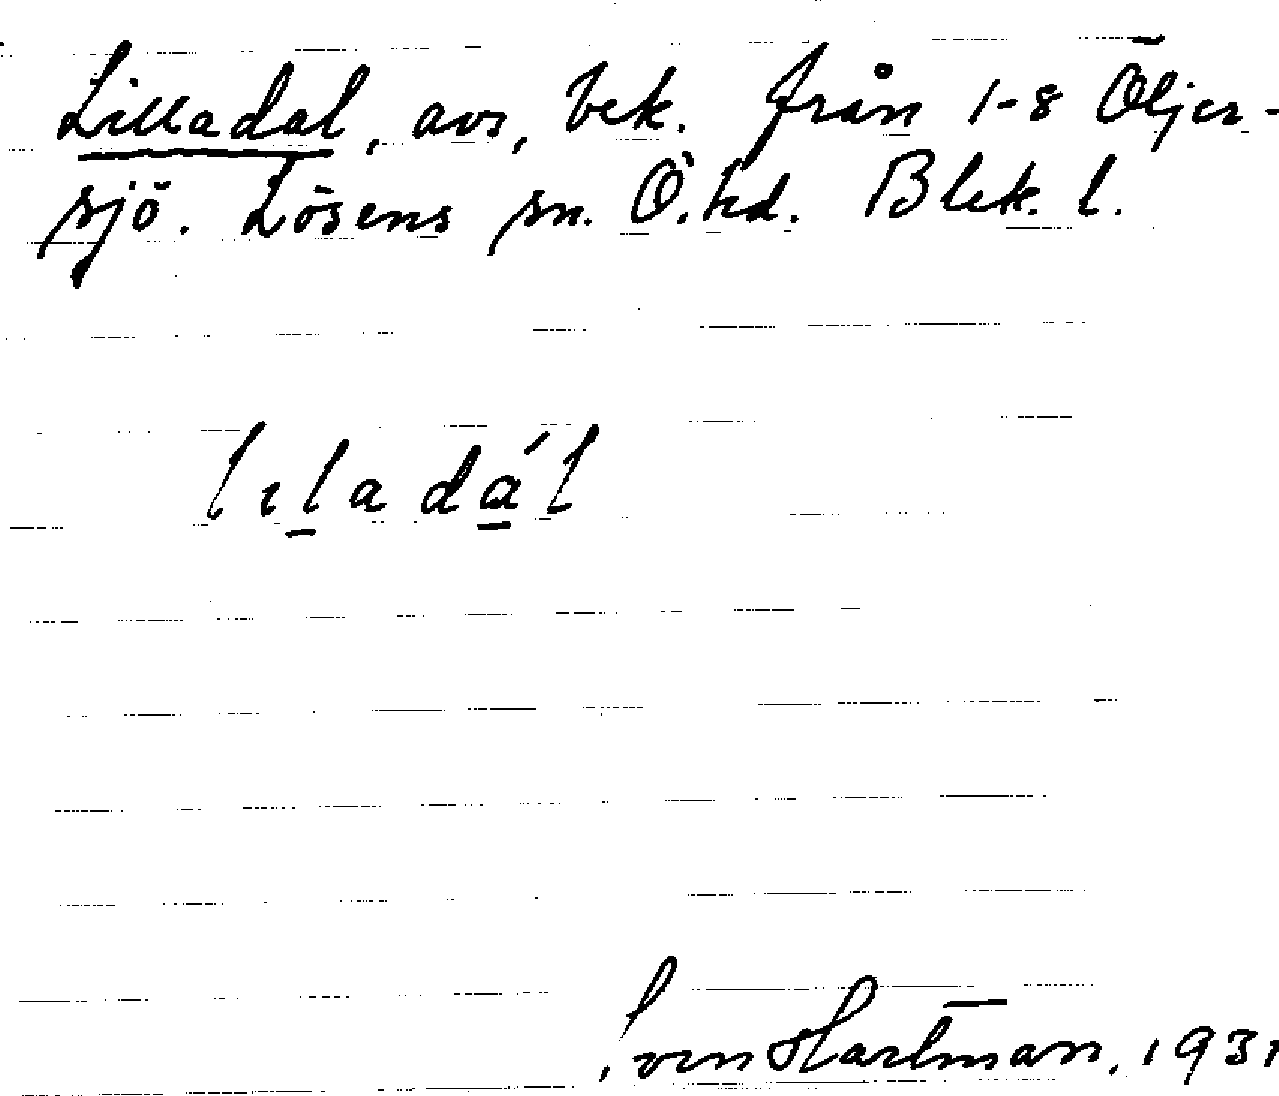 Lilladal, avs, bek. från 1-8 Öljer-
sjö. Lösens sn. Ö. hd. Blek. l.
lıl̲a dá̲l
Sven Hartman, 1931